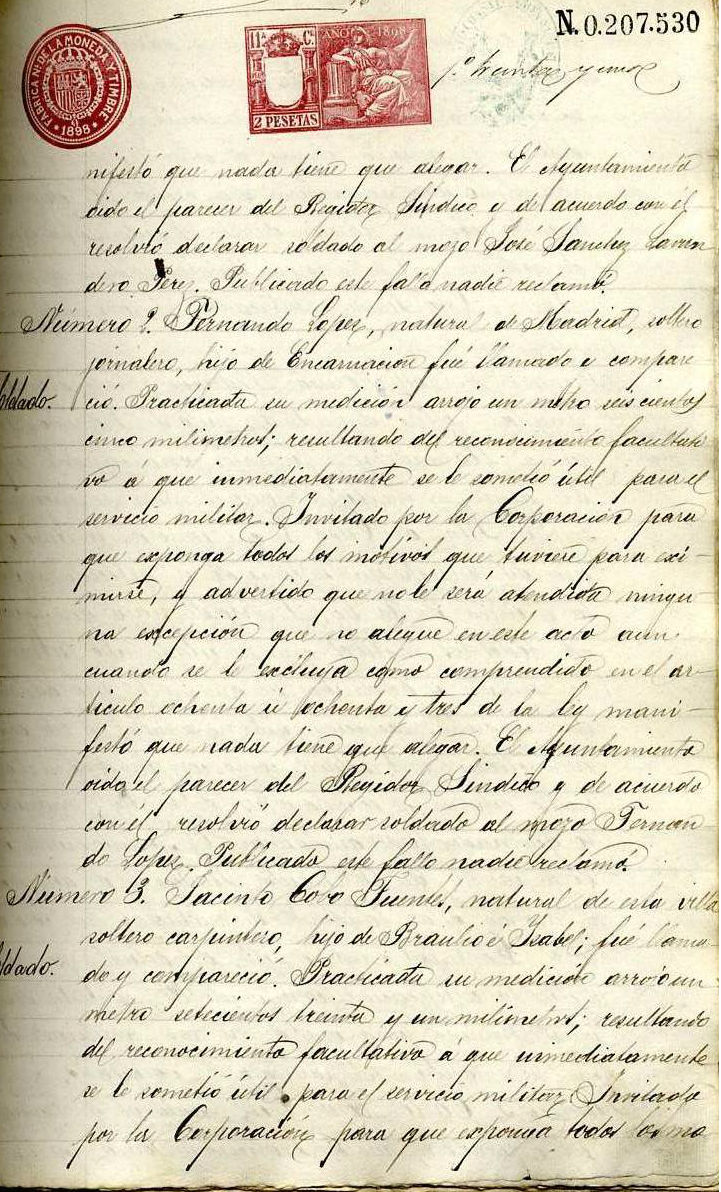 N. 0.207.530
FABRICA Nal DE LA MONEDA Y TIMBRE
* 1898 *
11ª Cl. AÑO 1898
2 PESETAS
fº treinta y uno
nifestó que nada tiene que alegar. El Ayuntamiento
oido el parecer del Regidor Sindico y de acuerdo con el
resolvió declarar soldado al mozo José Sanchez Lavan
dero Perez. Publicado este fallo nadie reclamó.
Número 2. Fernando Lopez, natural de Madrid, soltero
jornalero, hijo de Encarnación fué llamado e compare
ldado.
ció. Practicada su medición arrojo un metro seiscientos
cinco milimetros; resultando del reconocimiento facultati
vo á que inmediatamente se le sometió útil para el
servicio militar. Invitado por la Corporación para
que exponga todos los motivos que tuviere para exi-
mirse, y advertido que no le será atendida ningu
na excepción que no alegue en este acto aun
cuando se le excluya como comprendido en el ar-
ticulo ochenta ú ochenta y tres de la ley mani-
festó que nada tiene que alegar. El Ayuntamiento
oido el parecer del Regidor Sindico y de acuerdo
con él resolvió declarar soldado al mozo Fernan
do Lopez. Publicado este fallo nadie reclamó.
Número 3. Jacinto Cobo Fuentes, natural de esta villa
soltero carpintero, hijo de Braulio é Isabel; fué llama
ldado.
do y compareció. Practicada su medición arrojo un
metro setecientos treinta y un milimetros; resultando
del reconocimiento facultativo á que inmediatamente
se le sometió útil para el servicio militar. Invitado
por la Corporación para que exponga todos los mo